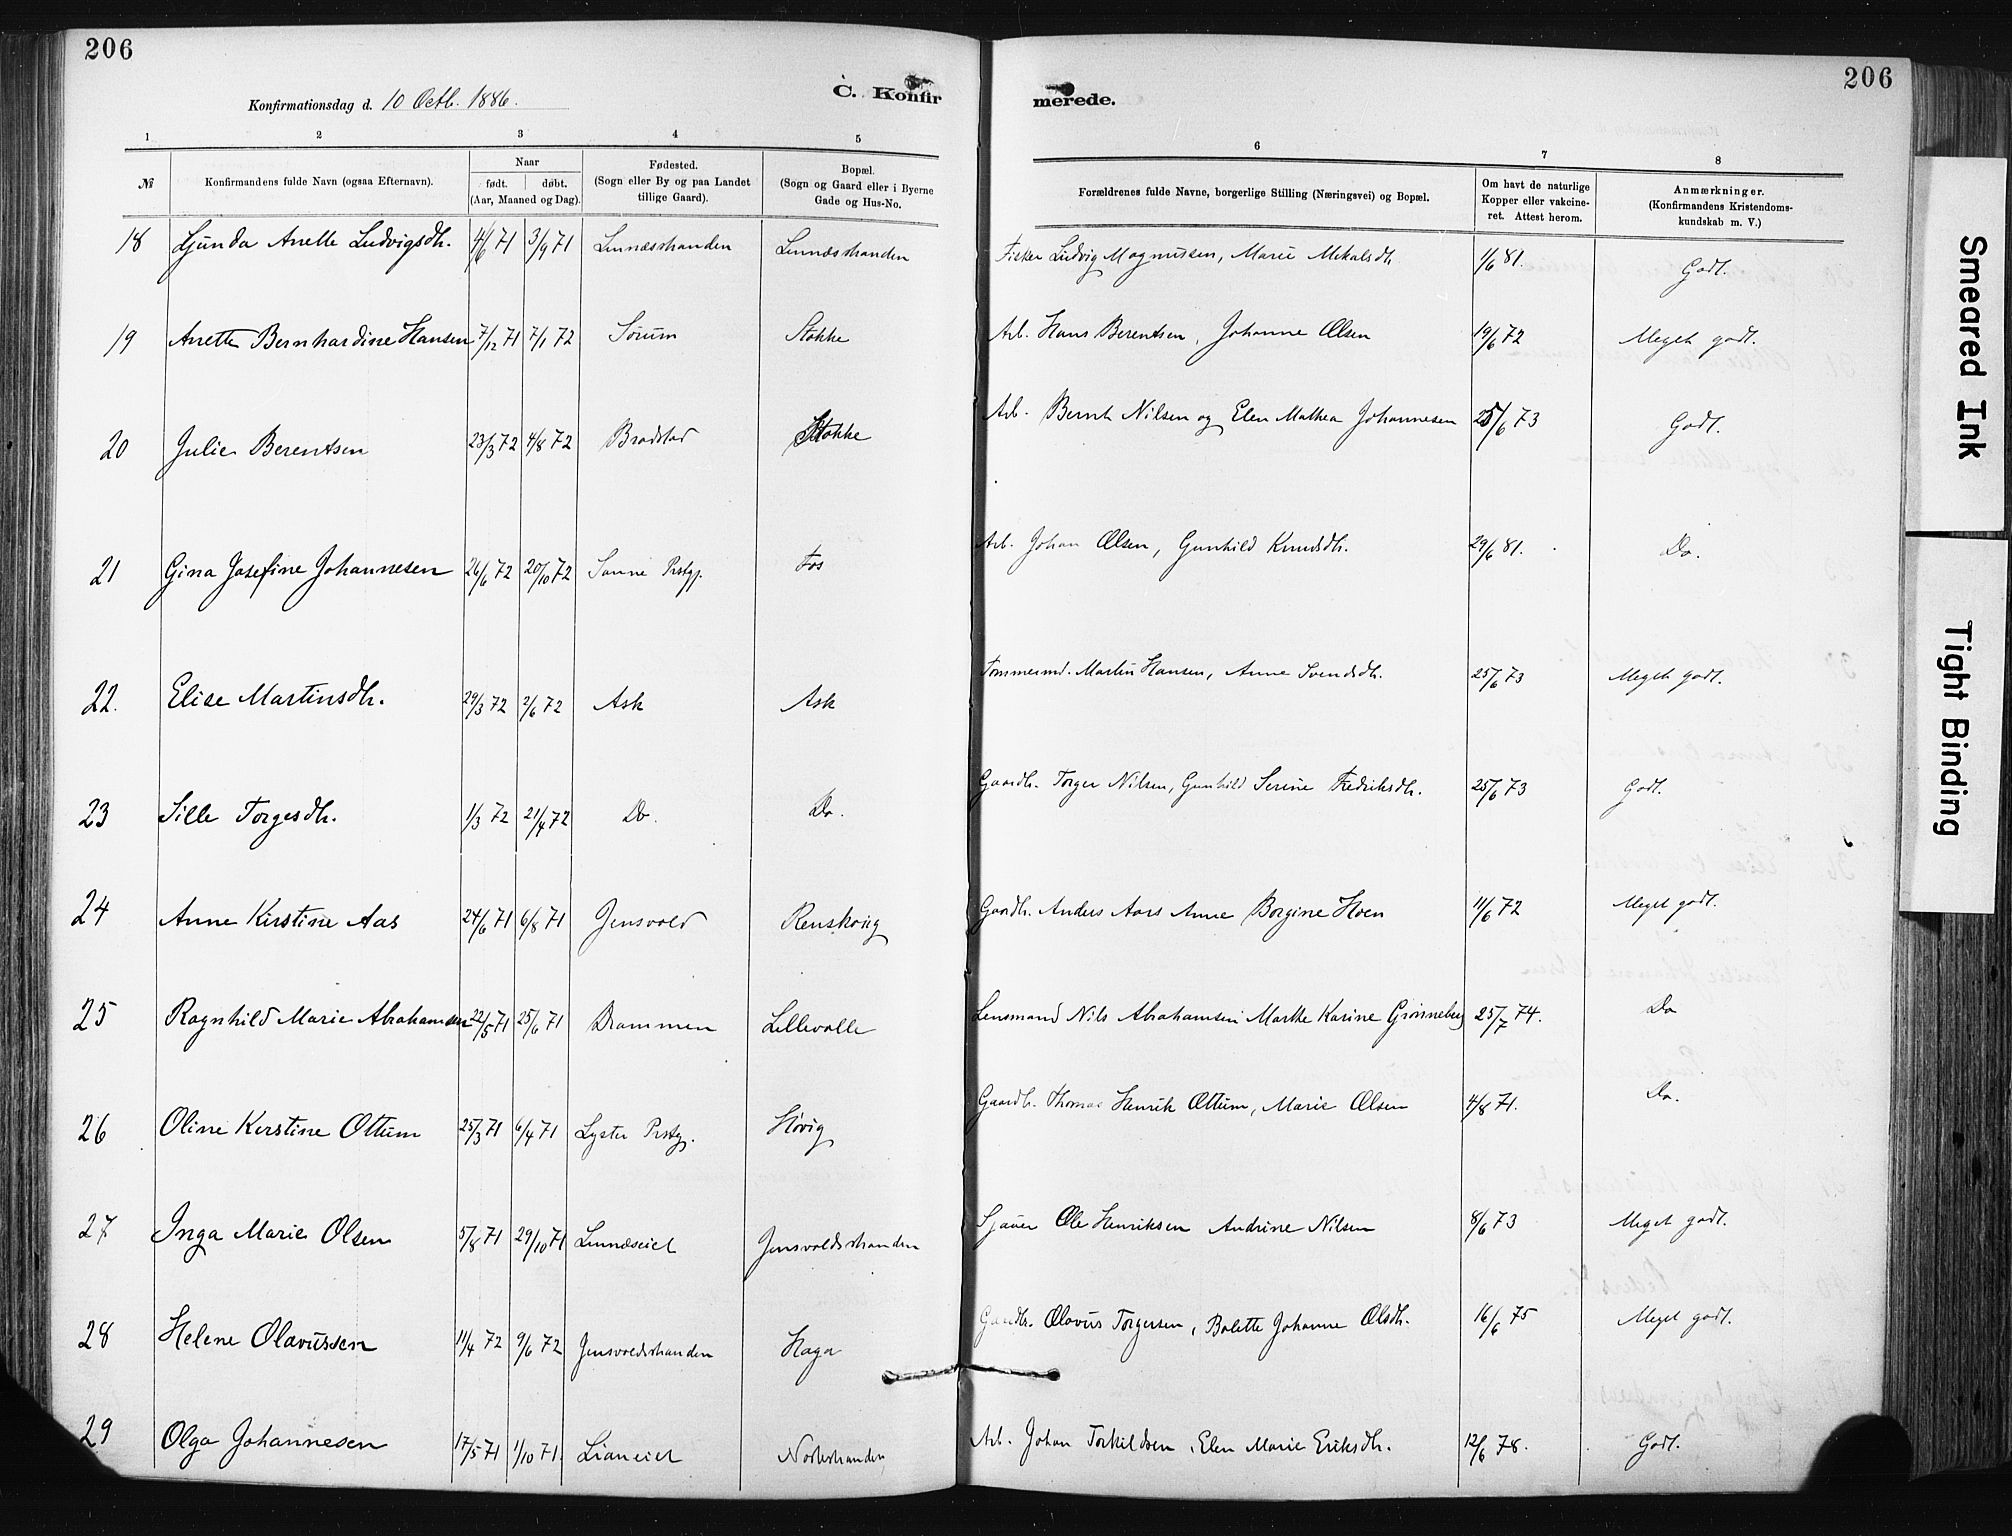 206
206
Konfirmationsdag d. 10 Octb. 1886.
C. Konfirmerede.
1 2 3 4 5 6 7 8
№ Konfirmandens fulde Navn (ogsaa Efternavn). Naar født. døbt. (Aar, Maaned og Dag). Fødested. (Sogn eller By og paa Landet tillige Gaard). Bopæl. (Sogn og Gaard eller i Byerne Gade og Hus-No. Forældrenes fulde Navne, borgerlige Stilling (Næringsvei) og Bopæl. Om havt de naturlige Kopper eller vakcineret. Attest herom. Anmærkninger. (Konfirmandens Kristendomskundskab m. V.)
18 Anette Ludvigsdh. 4/6 71 3/9 71 Linnæsstranden Linnæsstranden Fisker Ludvig Magnussen, Marie Mikalsdh. 1/6 81. Godt.
19 Anette Bernhardine Hansen 7/12 71 7/1 72 Sørum Stokke Arb. Hans Berentsen, Johanne Olsen 19/6 72 Meget godt.
20 Julie Berentsen 23/3 72 4/8 72 Bradstad Stokke Arb. Bernt Nilsen og Elen Mathea Johannesen 25/6 73 Godt.
21 Gina Josefine Johannesen 26/6 72 20/10 72 Prstgj. Fos Arb. Johan Olsen, Gunhild Knudsdh. 29/6 81. Do.
22. Elise Martinsdh. 29/3 72 2/6 72 Ask Ask Tømmermd. Martin Hansen, Anne Svendsdh. 25/6 73 Meget godt.
23 Sille Torgesdh. 1/3 72 21/4 72 Do. Do. Gaardb. Torger Nilsen, Gunhild Serine Fredriksdh. 25/6 73 Godt.
24 Anne Kirstine Aas 24/6 71 6/8 71 Jensvold Renskoug Gaardb. Anders Aars Anne Borgine Hoen 11/6 72 Meget godt.
25 Ragnhild Marie Abrahamsen 22/5 71 25/6 71 Drammen Lillevolle Lensmand Nils Abrahamsen Marthe Karine Grønneberg 25/7 74. Do
26 Oline Kirstine Ottum 25/3 71 6/4 71 Lyster Prstgj. Høvig Gaardb. Thomas Henrik Ottum, Marie Olsen 4/8 71. Do.
27 Inga Marie Olsen 5/8 71 29/10 71 Linnæseiet Jensvoldsstranden Sjauer Ole Henriksen Andrine Nilsen 8/6 73 Meget godt.
28 Helene Olavussen 11/4 72 9/6 72 Jensvoldsstranden Haga Gaardb. Olavus Torgersen, Bolette Johanne Olsdh. 16/6 75 Meget godt.
29 Olga Johannesen 17/5 71 1/10 71. Lianeiet Nostestranden Arb. Johan Torkildsen, Elen Marie Eriksdh. 12/6 78. Godt.
Smeared Ink
Tight Binding